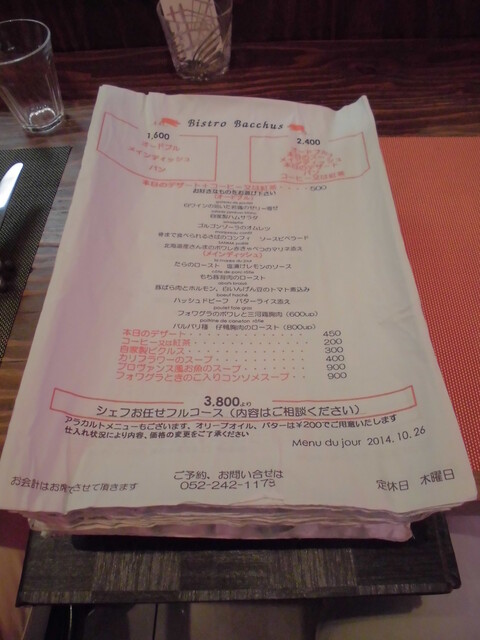 Bistro Bacchus
1,600
オードブル
メインディッシュ
パン
2,400
オードブル
メインディッシュ
パン
コーヒー又は紅茶
本日のデザート+コーヒー又は紅茶・・・・500
お好きな方をお選び下さい
(オードブル)
自家製ハムサラダ
ゴルゴンゾーラのオムレツ
骨まで食べられるさばのコンフィ ソースピペラード
(メインディッシュ)
たらのロースト 塩漬けレモンのソース
もち豚肩肉のロースト
豚ばら肉とホルモン、白いんげん豆のトマト煮込み
boeuf haché
ハッシュドビーフ バターライス添え
フォワグラのポワレと三河鶏胸肉 (600up)
バルバリ種 仔鴨胸肉のロースト (800up)
本日のデザート・・・・・・・・・・・ 450
コーヒー又は紅茶・・・・・・・・・・ 200
自家製ピクルス・・・・・・・・・・・ 300
カリフラワーのスープ・・・・・・・・ 400
プロヴァンス風お魚のスープ・・・・・ 900
フォワグラときのこ入りコンソメスープ・・ 900
3,800より
シェフお任せフルコース (内容はご相談ください)
アラカルトメニューもございます、オリーブオイル、バターは¥200でご用意いたします
仕入れ状況により内容、価格の変更をご了承ください
Menu du jour 2014.10.26
ご予約、お問い合せは
052-242-1178
お会計はお席でさせて頂きます
定休日 木曜日